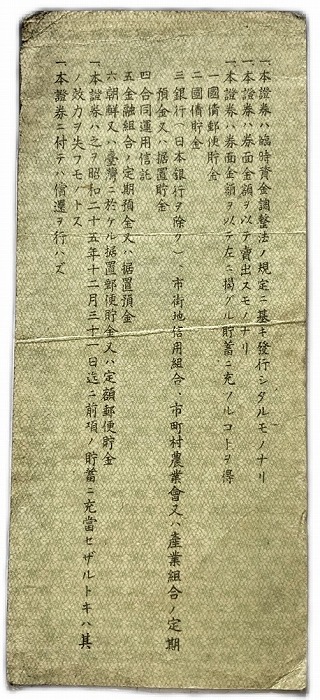 一本證券ハ臨時資金調整法ノ規定ニ基キ發行シタルモノナリ
一本證券ハ券面金額ヲ以テ賣出スモノナリ
一本證券ハ券面金額ヲ以テ左ニ揚グル貯蓄ニ充ツルコトヲ得
一國債郵便貯金
二國債貯金
三銀行(日本銀行ヲ除ク)、市街地信用組合、市町村農業會又ハ產業組合ノ定期
預金又ハ据置貯金
四合同運用信託
五金融組合ノ定期預金又ハ据置預金
六朝鮮又ハ臺灣ニ於ケル据置郵便貯金又ハ定額郵便貯金
一本證券ハ之ヲ昭和二十五年十二月三十一日迄ニ前項ノ貯蓄ニ充當セザルトキハ其
ノ效力ヲ失フモノトス
一本證券ニ付テハ償還ヲ行ハズ